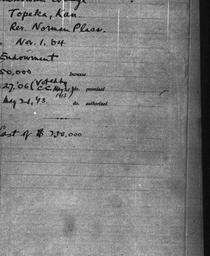 Topeka, Kan.
Res. Norman Place.
Nov. 1, 04
Endowment
50,000
Increase
27, '06 (V. do. promised
May 24, '43. do. authorized
ost of $ 250,000